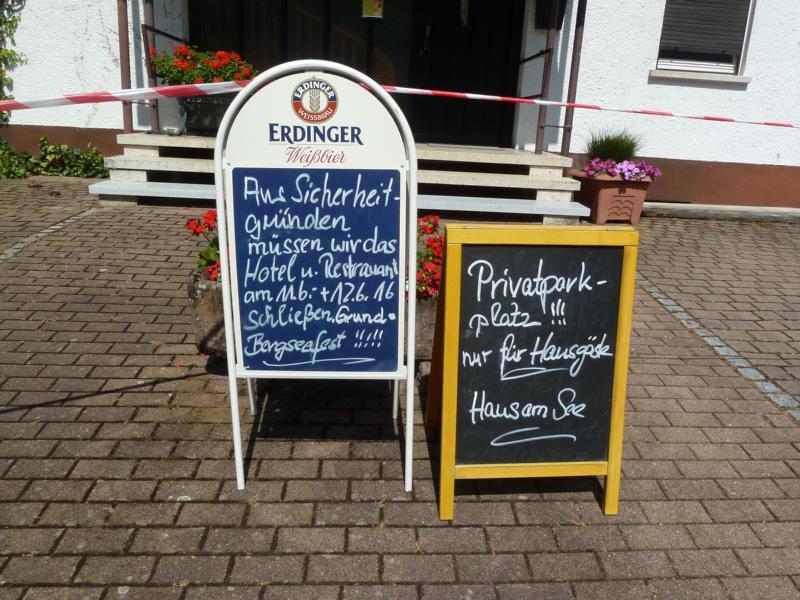 ERDINGER
WEISSBRÄU
ERDINGER
Weißbier
Aus Sicherheit-
gründen
müssen wir das
Hotel u. Restrauant
am 11.6.+12.6.16
schließen. Grund-
Bergseefest !!!!!
Privatpark-
platz !!!
nur für Hausgäste
Haus am See